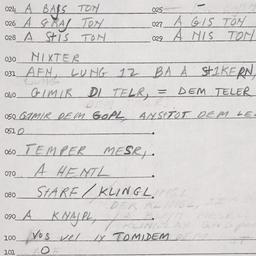 024 A BAJS TON 025 —
026 A GRAJ TON 027 A GIS TON
028 A STIS TON 029 A NIS TON
030 NIXTER
031 AFN, LUNG 12 BA A STIKERN,
040 GIMIR DI TELR, = DEM TELER
050 GIMIR DEIM GOPL, ANSTOT DEM LE
051 0
060 TEMPER MESR,
070 A HENTL
080 STARF / KLINGL
090 A KNAJPL,
100 VOS VEI IX TOMIDEM
101 0